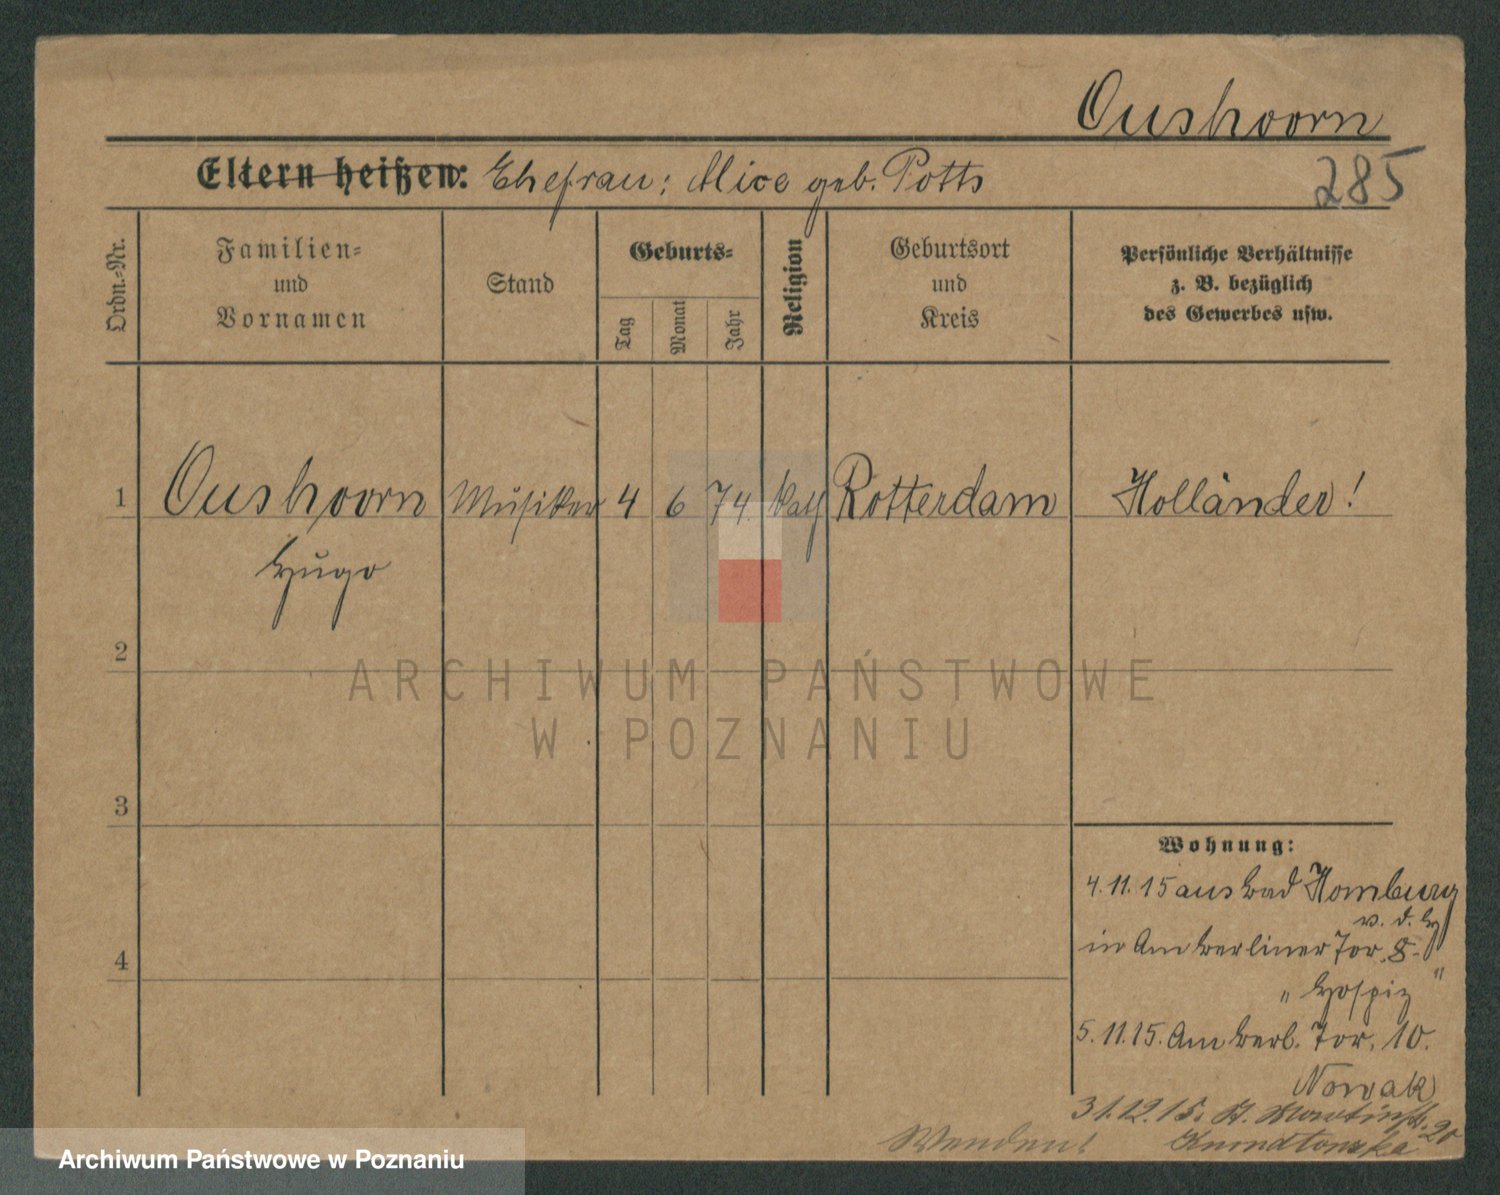 Oushoorn
Eltern heißen: Ehefrau: Alice geb. Potts
285
Ordn.-Nr.
Familien-
und
Vornamen
Stand
Geburts-
Tag
Monat
Jahr
Religion
Geburtsort
und
Kreis
Persönliche Verhältnisse
z. B. bezüglich
des Gewerbes usw.
1 Oushoorn Musiker 4 6 74. kath Rotterdam Holländer!
Hugo
2
3
4
Wohnung:
4.11.15 aus Bad Homburg
v. d. H
in Am Berliner Tor 8.
„Hospiz"
5.11.15. Am Berl. Tor. 10.
Nowak
31.12.15. St. Martinstr. 20
Wenden!
ARCHIWUM PAŃSTWOWE
W POZNANIU
Archiwum Państwowe w Poznaniu